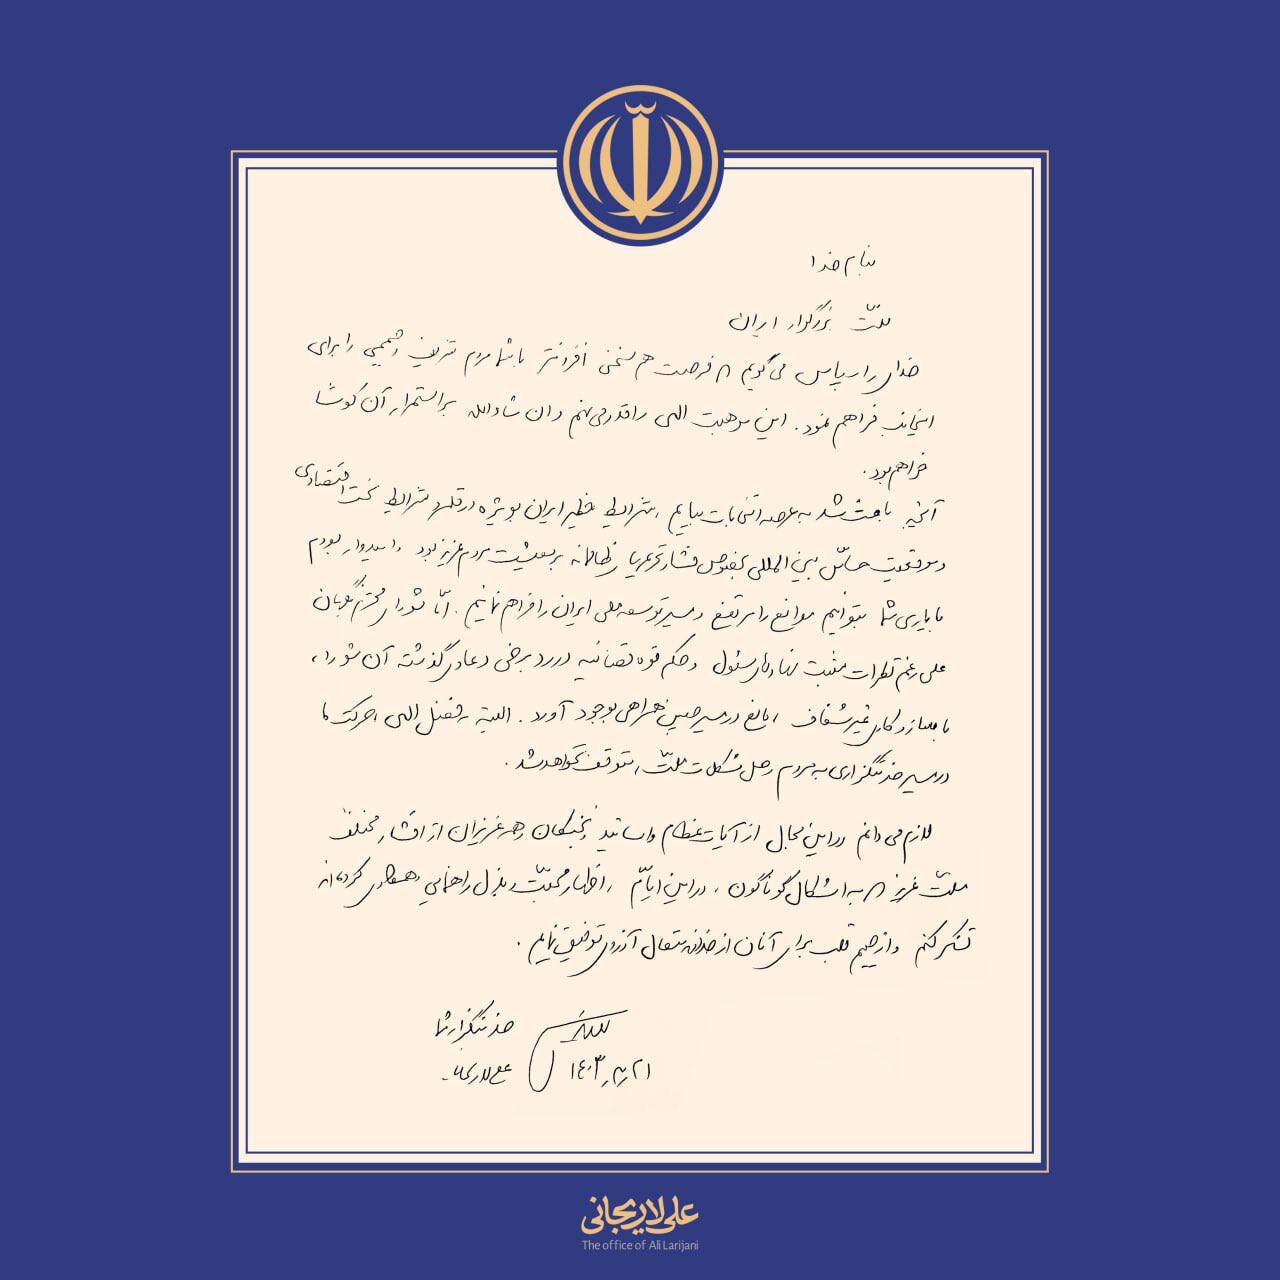 بنام خدا
ملّت بزرگوار ایران
خدای را سپاس می گویم که فرصت هم سخنی افزونتر با شما مردم شریف و صمیمی را برای
اینجانب فراهم نمود. این موهبت الهی را قدر می نهم و ان شاءالله بر استمرار آن کوشا
خواهم بود.
آنچه باعث شد به عرصه انتخابات بیایم، شرایط خطیر ایران بویژه در قلمرو شرایط سخت اقتصادی
و موقعیت حسّاس بین المللی بخصوص فشار تحریمهای ظالمانه بر معیشت مردم عزیز بود و امیدوار بودم
با یاری شما بتوانیم موانع را مرتفع و مسیر توسعه ملی ایران را فراهم نمائیم. امّا شورای محترم نگهبان
علی رغم نظرات مثبت نهادهای مسئول و حکم قوه قضائیه در رد برخی دعاوی گذشته آن شورا،
با سازوکاری غیر شفاف، مانع در مسیر چنین همراهی بوجود آورد. البته به فضل الهی، حرکت ما
در مسیر خدمتگزاری به مردم و حل مشکلات ملّت، متوقف نخواهد شد.
لازم می دانم در این مجال از آیات عظام و اساتید و نخبگان و همه عزیزان از اقشار مختلف
ملّت عزیز که به اشکال گوناگون، در این ایّام، اظهار محبّت و بذل راهنمایی و همفکری کرده‌اند
تشکر کنم و از صمیم قلب برای آنان از خداوند متعال آرزوی توفیق نمایم.
خدمتگزار شما
علی لاریجانی
۱۴۰۳٫۳٫۲۱
علی لاریجانی
The office of Ali Larijani